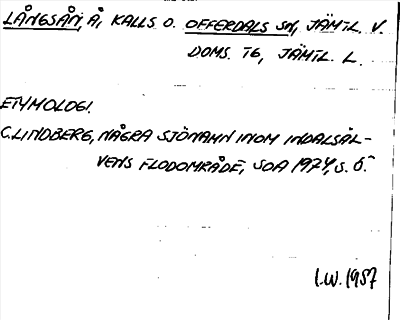 LÅNGSÅN, Å, KALLS O. OFFERDALS SN, JÄMTL. V.
DOMS. TG, JÄMTL L.
ETYMOLOGI.
C. LINDBERG, NÅGRA SJÖNAMN INOM INDALSÄL-
VENS FLODOMRÅDE, SOA 1974, S. 6.
I.W. 1957